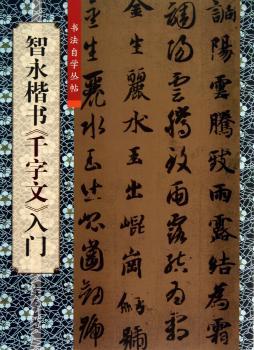 书法自学丛帖
智永楷书《千字文》入门
調陽雲騰致雨露結為霜
調陽雲騰致雨露結為霜
金生麗水玉出崐崗劍號
金生麗水玉出崐崗劍號